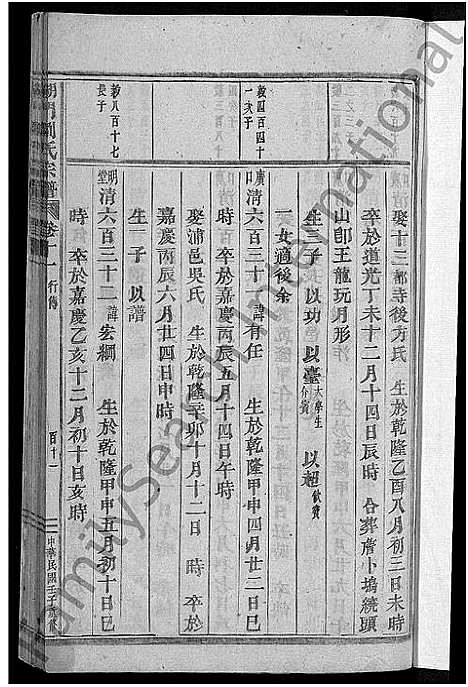 娶十三都寺後方氏 生於乾隆乙酉八月初三日未時
卒於道光丁未十二月十四日辰時 合葬詹卜塢繞頭
山卽王龍玩月形
生三子 以功 以臺大學生介賓 以超飮賓
一女適後余
敦四百四十一次子
清六百三十一諱有任 生於乾隆甲申四月廿二日巳
時 卒於嘉慶丙辰五月十四日午時
娶浦邑吳氏 生於乾隆辛卯十月十二日 時 卒於
嘉慶丙辰六月廿四日申時
生一子 以譜
敦八百十七長子
明堂清六百三十二諱宏綱 生於乾隆甲申五月初十日巳
時 卒於嘉慶乙亥十二月初十日亥時
氏宗譜 卷十一 行傳 百十一 中華民國壬子
FamilySearch International